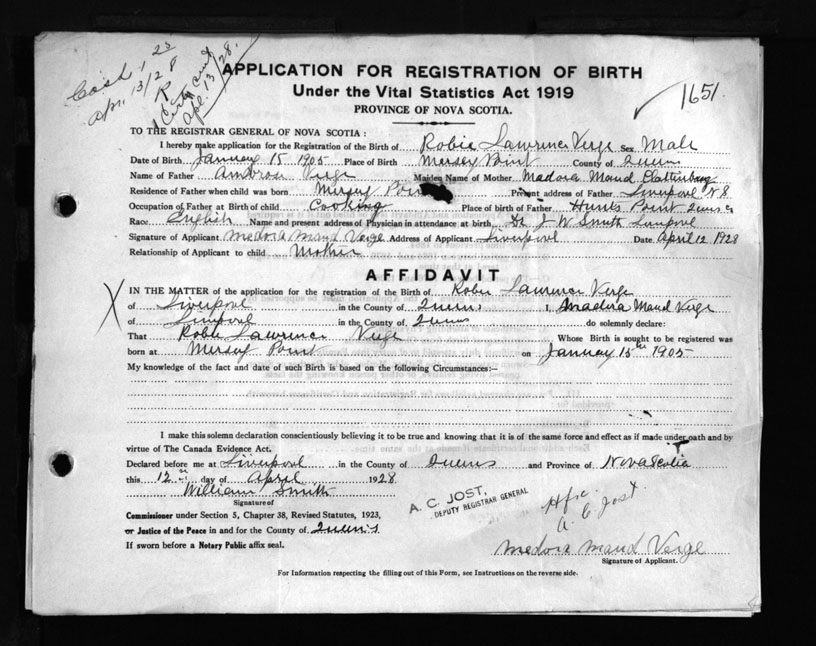 Cash 1 25
Apr. 13/28
R
Certy card
Apl. 13/28.
1651.
APPLICATION FOR REGISTRATION OF BIRTH
Under the Vital Statistics Act 1919
PROVINCE OF NOVA SCOTIA.
TO THE REGISTRAR GENERAL OF NOVA SCOTIA :
I hereby make application for the Registration of the Birth of Robie Lawrence Verge Sex Male
Date of Birth January 15 1905 Place of Birth Mersey Point County of Queens
Name of Father Ambrose Verge Maiden Name of Mother Madora Maud Clattenburg
Residence of Father when child was born Mersey Point Present address of Father Liverpool N S
Occupation of Father at Birth of child Cooking Place of birth of Father Hunts Point Queens Co
Race English Name and present address of Physician in attendance at birth Dr J W Smith Liverpool
Signature of Applicant Medora Maud Verge Address of Applicant Liverpool Date April 12 1928
Relationship of Applicant to child Mother
AFFIDAVIT
IN THE MATTER of the application for the registration of the Birth of Robie Lawrence Verge
of Liverpool in the County of Queens I, Madora Maud Verge
of Liverpool in the County of Queens do solemnly declare:
That Robie Lawrence Verge Whose Birth is sought to be registered was
born at Mersey Point on January 15th 1905
My knowledge of the fact and date of such Birth is based on the following Circumstances:—
I make this solemn declaration conscientiously believing it to be true and knowing that it is of the same force and effect as if made under oath and by
virtue of The Canada Evidence Act.
Declared before me at Liverpool in the County of Queens and Province of Nova Scotia
this 12th day of April 1928
William Smith
Signature of
Commissioner under Section 5, Chapter 38, Revised Statutes, 1923,
or Justice of the Peace in and for the County of Queens
If sworn before a Notary Public affix seal.
A. C. JOST,
DEPUTY REGISTRAR GENERAL
A. C. Jost.
Medora Maud Verge
Signature of Applicant.
For Information respecting the filling out of this Form, see Instructions on the reverse side.